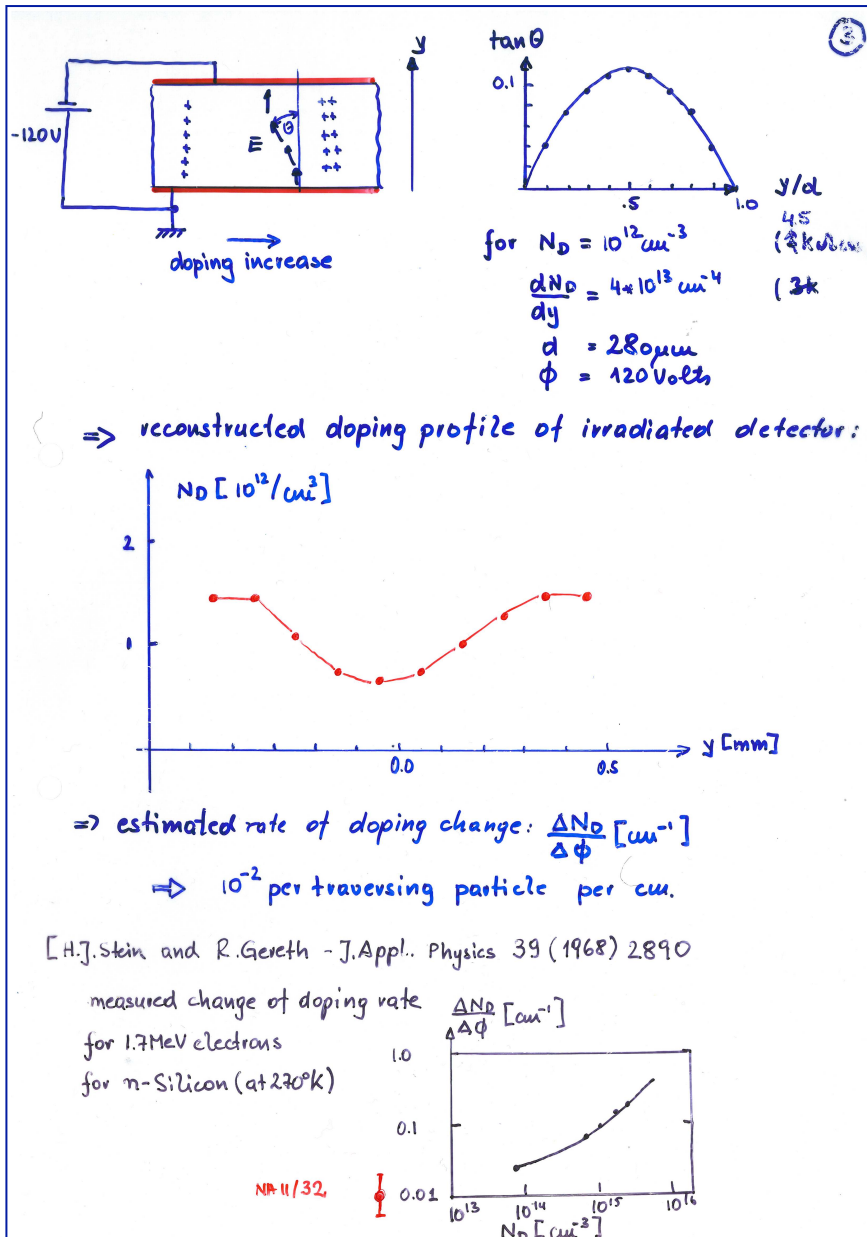 ③
y
tanθ
0.1
.5
1.0
y/d
-120V
++
Ē
θ
doping increase
4.5
for N_D = 10¹² cm⁻³
dN_D/dy = 4*10¹³ cm⁻⁴
(3k
d = 280μm
ϕ = 120 Volts
=> reconstructed doping profile of irradiated detector:
N_D [10¹²/cm³]
2
1
0.0
0.5
y [mm]
=> estimated rate of doping change: ΔN_D/Δϕ [cm⁻¹]
=> 10⁻² per traversing particle per cm.
[H.J. Stein and R. Gereth - J. Appl.. Physics 39 (1968) 2890
measured change of doping rate
for 1.7MeV electrons
for n-Silicon (at 270°K)
ΔN_D/Δϕ [cm⁻¹]
1.0
0.1
0.01
NA11/32
10¹³
10¹⁴
10¹⁵
10¹⁶
N_D [cm⁻³]